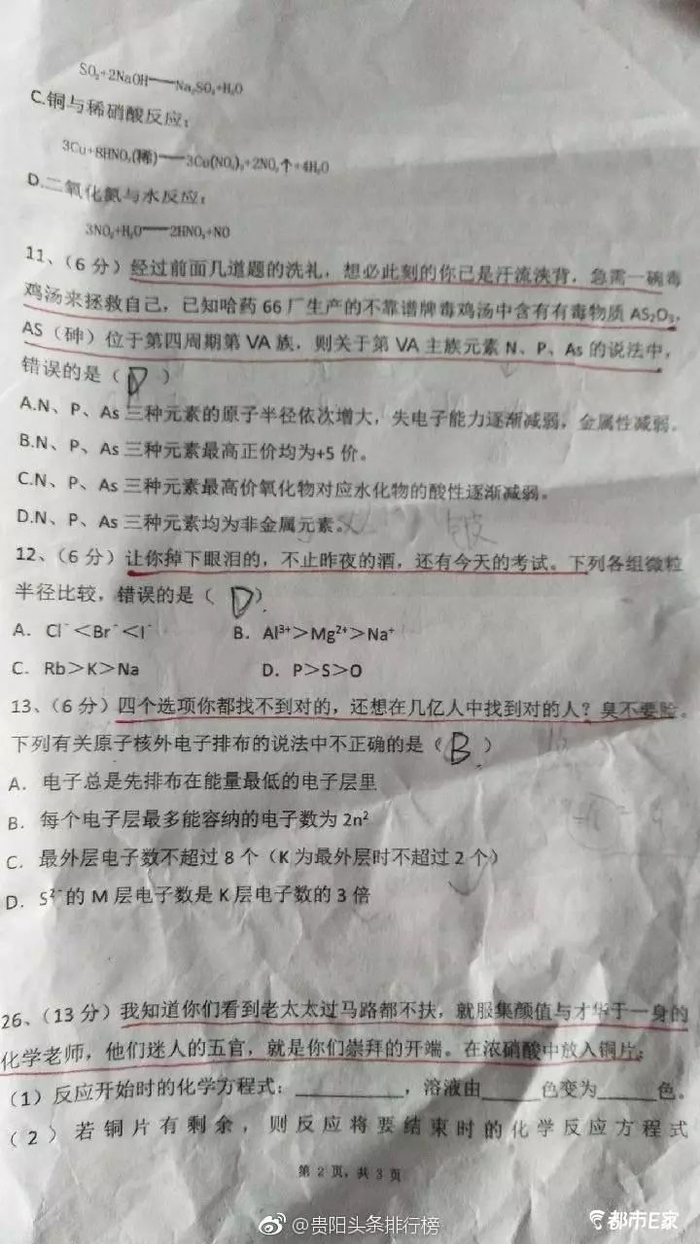 SO₂+2NaOH══Na₂SO₃+H₂O
C.铜与稀硝酸反应：
3Cu+8HNO₃(稀)══3Cu(NO₃)₂+2NO↑+4H₂O
D.二氧化氮与水反应：
3NO₂+H₂O══2HNO₃+NO
11、（6 分）经过前面几道题的洗礼，想必此刻的你已是汗流浃背，急需一碗毒
鸡汤来拯救自己，已知哈药 66 厂生产的不靠谱牌毒鸡汤中含有有毒物质 AS₂O₃，
AS（砷）位于第四周期第 VA 族，则关于第 VA 主族元素 N、P、As 的说法中，
错误的是（ D ）
A.N、P、As 三种元素的原子半径依次增大，失电子能力逐渐减弱，金属性减弱。
B.N、P、As 三种元素最高正价均为+5 价。
C.N、P、As 三种元素最高价氧化物对应水化物的酸性逐渐减弱。
D.N、P、As 三种元素均为非金属元素。
12、（6 分）让你掉下眼泪的，不止昨夜的酒，还有今天的考试。下列各组微粒
半径比较，错误的是（ D ）
A. Cl⁻＜Br⁻＜I⁻ B. Al³⁺＞Mg²⁺＞Na⁺
C. Rb＞K＞Na D. P＞S＞O
13、（6 分）四个选项你都找不到对的，还想在几亿人中找到对的人？臭不要脸。
下列有关原子核外电子排布的说法中不正确的是（ B ）
A. 电子总是先排布在能量最低的电子层里
B. 每个电子层最多能容纳的电子数为 2n²
C. 最外层电子数不超过 8 个（K 为最外层时不超过 2 个）
D. S²⁻的 M 层电子数是 K 层电子数的 3 倍
26、（13 分）我知道你们看到老太太过马路都不扶，就服集颜值与才华于一身的
化学老师，他们迷人的五官，就是你们崇拜的开端。在浓硝酸中放入铜片：
（1）反应开始时的化学方程式：__________，溶液由_____色变为_____色。
（2）若铜片有剩余，则反应将要结束时的化学反应方程式
第 2 页，共 3 页
@贵阳头条排行榜
都市E家